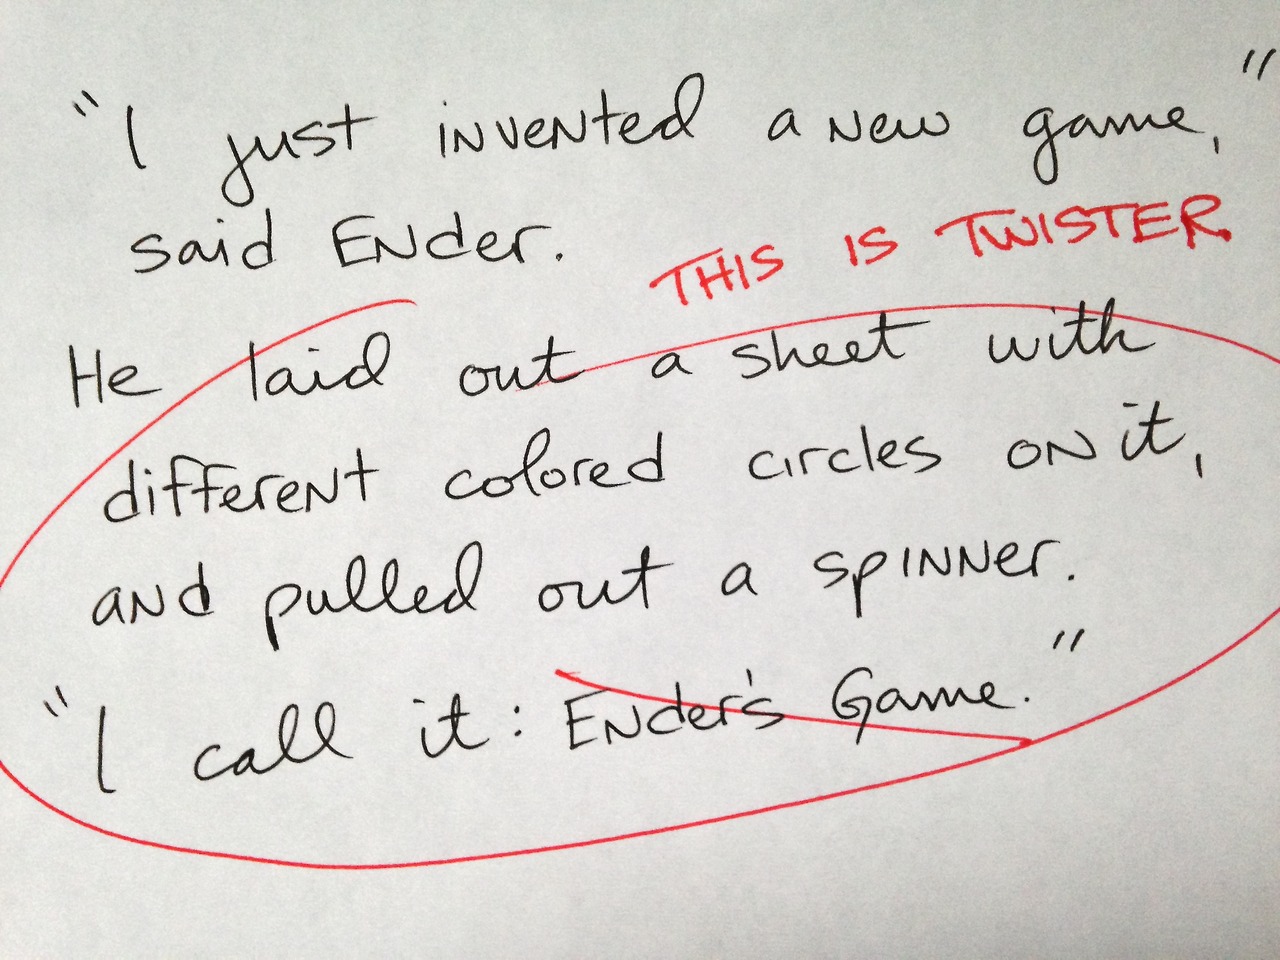 "I just invented a new game,"
said Ender.
THIS IS TWISTER
He laid out a sheet with
different colored circles on it,
and pulled out a spinner.
"I call it: Ender's Game."